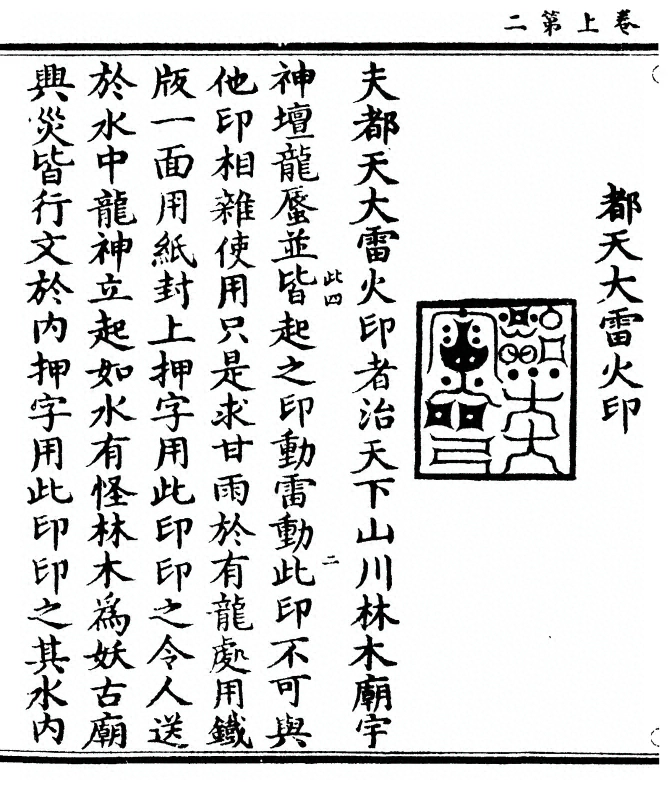 卷上第二
都天大雷火印
夫都天大雷火印者治天下山川林木廟宇
此四
二
神壇龍蜃並皆起之印動雷動此印不可與
他印相雜使用只是求甘雨於有龍處用鐵
版一面用紙封上押字用此印印之令人送
於水中龍神立起如水有怪林木為妖古廟
興災皆行文於內押字用此印印之其水內